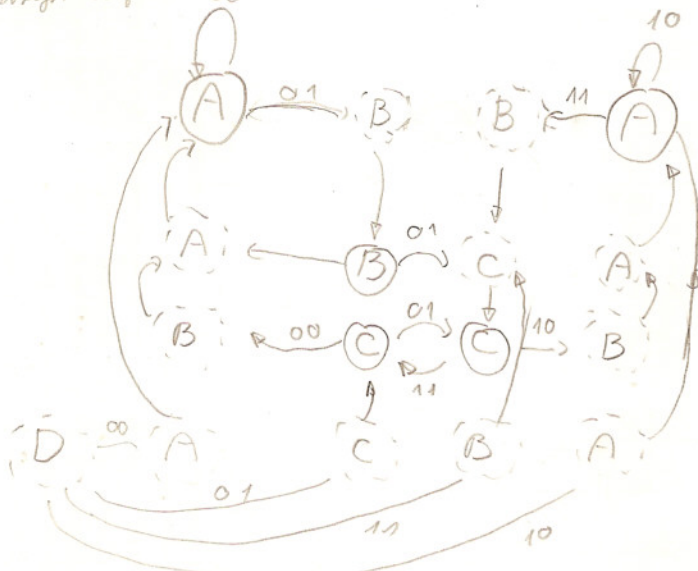 10
A 01 B B 11 A
A B 01 C A
B 00 C 01 C 10 B
11
D 00 A C B A
01
11
10